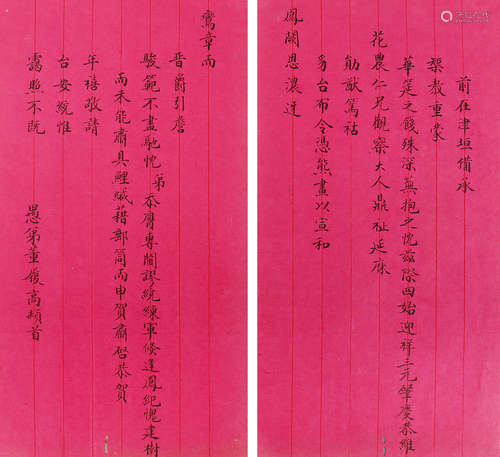 前在津垣備承
榘教重蒙
華筵之餞殊深蕪抱之忱茲際四始迎祥三元肇慶恭維
花農仁兄觀察大人鼎祉延庥
勛猷篤祜
多台布令憑熊畫以宣和
鳳闕恩濃迓
鸞章而
晉爵引詹
駿範不盡馳忱弟忝膺專閫謬統練軍候進鳳紀愧建樹
而未能肅具鯉緘藉郵筒而申賀肅啓恭賀
年禧敬請
台安統惟
靄照不既
愚弟董履高頓首